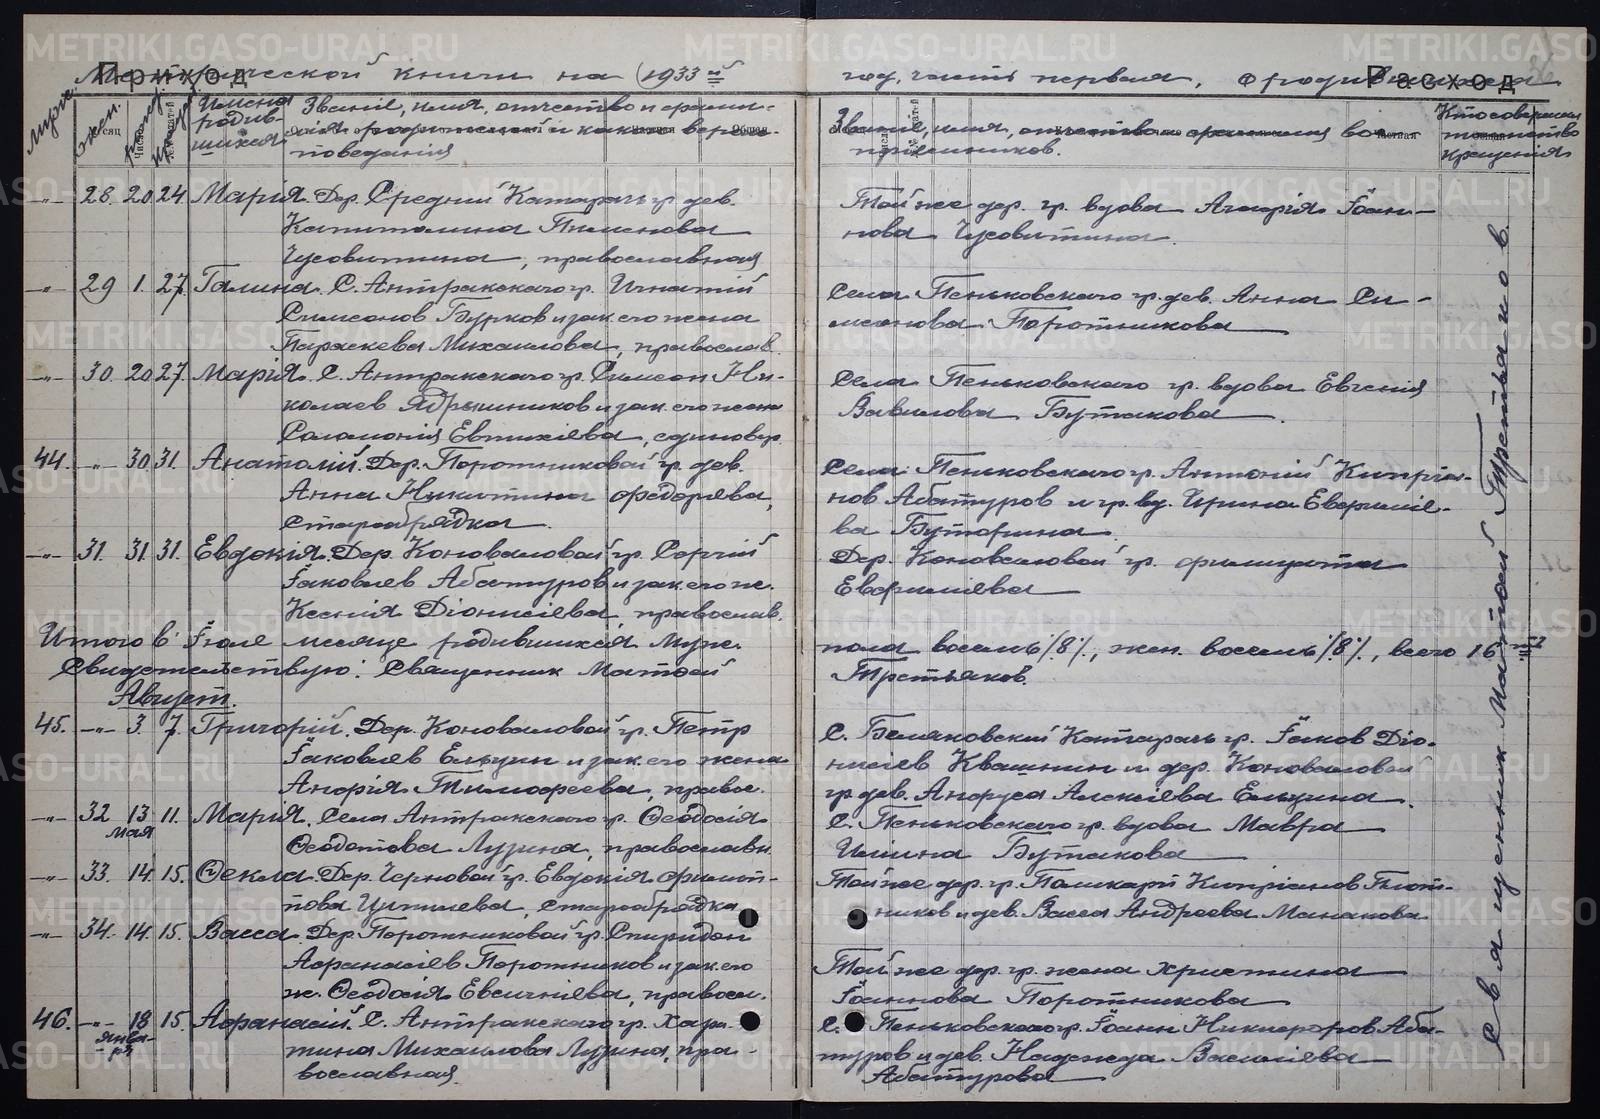 Метрической книги на 1933 й
год, часть первая, о родившихся
Приход
Расход
Муже.
Жен.
Имена родив-
шихся
Званіе, имя, отчество и фами-
лія родителей и какого веро-
поведанія
Званіе, имя, отчество и фамилия вос-
приемников.
Кто совершал
таинство
крещенія
-"- 28. 20 24. Марія. Дер. Средний Катарач гр. дев.
Капитолина Пименова
Чусовитина, православная
Той же дер. гр. вдова Агафія Іоан-
нова Чусовитина.
-"- 29 1. 27. Галина. С. Антракскаго гр. Игнатій
Симеонов Бурков и зак. его жена
Параскева Михаилова, православ.
Села Пеньковскаго гр. дев. Анна Си-
меонова Поротникова
-"- 30. 20 27. Марія. С. Антракскаго гр. Симеон Ни-
колаев Ядрышников и зак. его жена
Саломонія Евтихіева, единовер.
Села Пеньковскаго гр. вдова Евгенія
Вавилова Бутакова.
44. -"- 30 31. Анатолій. Дер. Поротниковой гр. дев.
Анна Никитина Федорева,
старообрядка.
Села Пеньковскаго гр. Антоній Кипріа-
нов Абатуров и гр. вд. Ирина Евфиміе-
ва Буторина.
-"- 31. 31. 31. Евдокія. Дер. Коноваловой гр. Сергій
Іаковлев Абатуров и зак. его ж.
Ксенія Діонисіева, православ.
Дер. Коноваловой гр. Филицата
Евфиміева
Итого в Іюле месяце родившихся муж.
пола восемь /8/, жен. восемь /8/, всего 16
Свидетельствую: Священник Матфей
Третьяков.
Август.
45. -"- 3. 7. Григорій. Дер. Коноваловой гр. Петр
Іаковлев Ельцин и зак. его жена
Анфія Тимофеева, правос.
С. Беляковский Катарач гр. Іаков Діо-
нисіев Квашнин и дер. Коноваловой
гр. дев. Анфуса Алексіева Ельцина.
-"- 32 13 11. Марія. Села Антракскаго гр. Феодосія
мая
Феодотова Лузина, православн.
С. Пеньковскаго гр. вдова Мавра
Ильина Бутакова
-"- 33. 14. 15. Фекла. Дер. Черновой гр. Евдокія Филип-
пова, старообрядка
Той же дер. гр. Поликарп Кипріанов Плот-
ников и дев. Васса Андреева Манакова
-"- 34. 14. 15. Васса. Дер. Поротниковой гр. Спиридон
Афанасіев Поротников и зак. его
ж. Феодосія Евсигніева, правосл.
Той же дер. гр. жена Христина
Іоаннова Поротникова
46. -"- 18 15. Афанасій. С. Антракскаго гр. Хари-
янва-
ря
тина Михаилова Лузина, пра-
вославная.
С. Пеньковскаго гр. Іоанн Никифоров Аба-
туров и дев. Надежда Василіева
Абатурова
Священник Матфей Третьяков.
METRIKI.GASO-URAL.RU